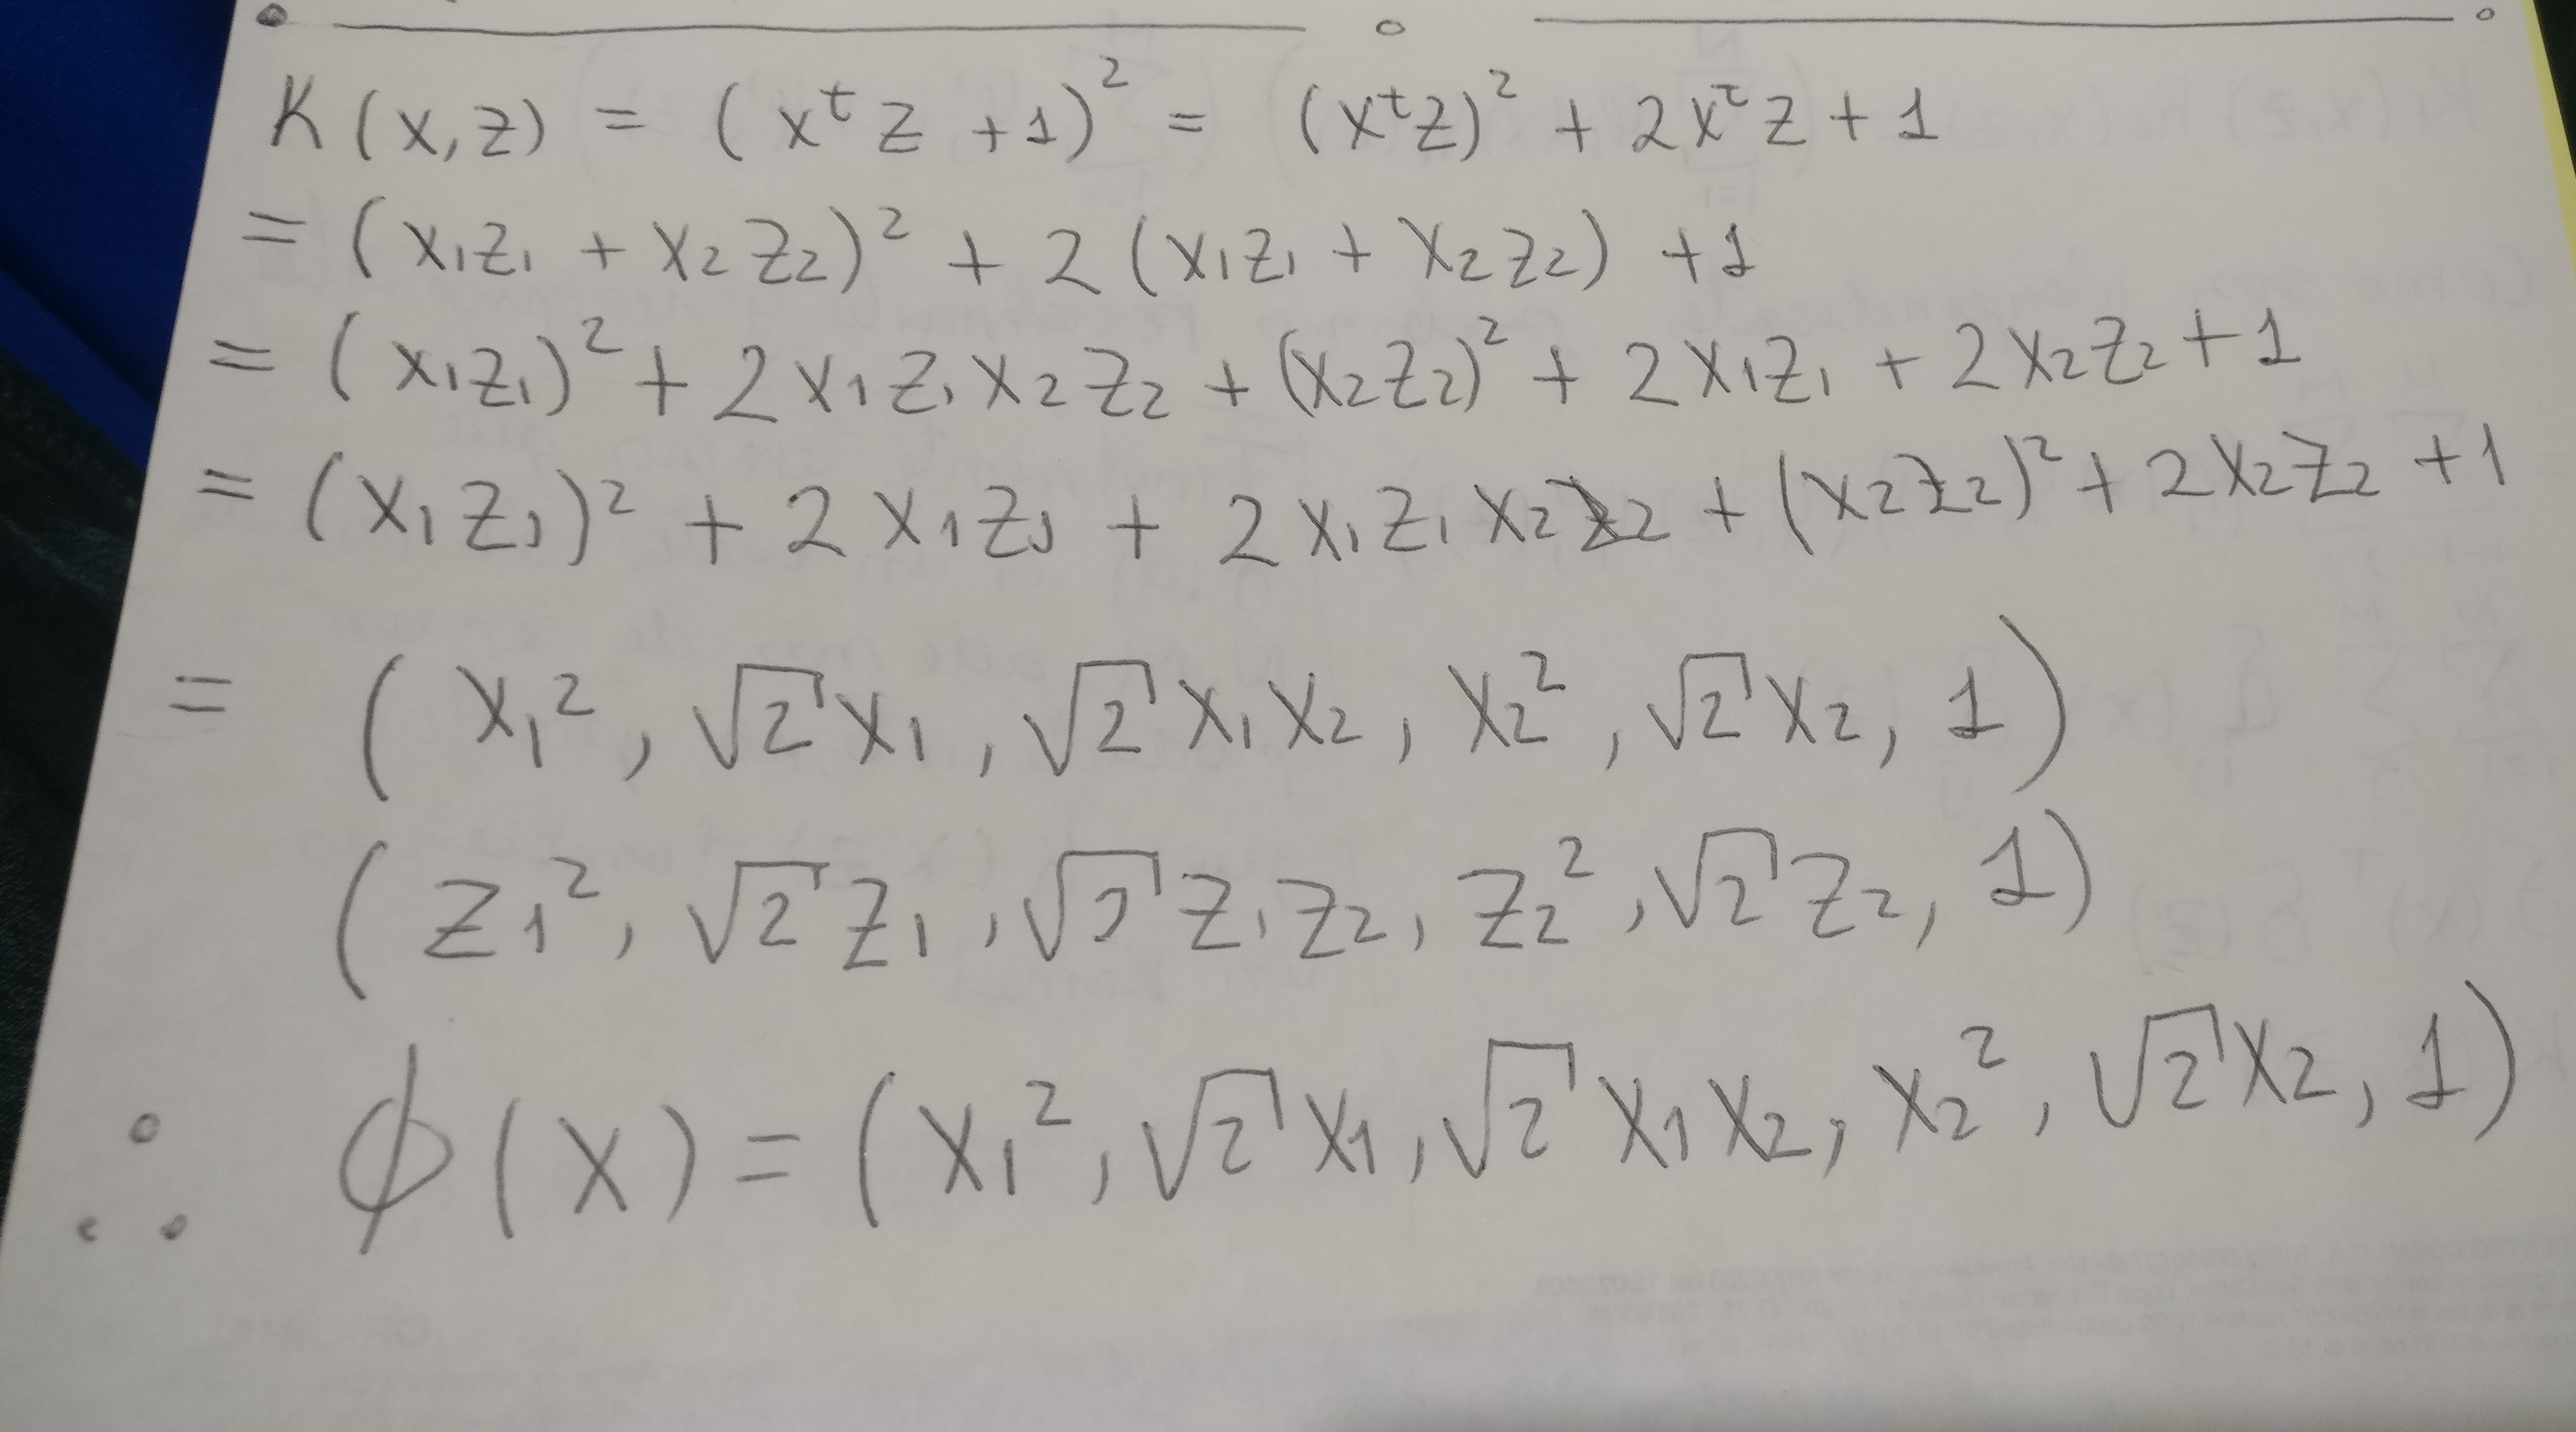 K(x,z) = (xᵗz +1)² = (xᵗz)² + 2xᵗz + 1
= (x₁z₁ + x₂z₂)² + 2(x₁z₁ + x₂z₂) +1
= (x₁z₁)² + 2x₁z₁x₂z₂ + (x₂z₂)² + 2x₁z₁ + 2x₂z₂ + 1
= (x₁z₁)² + 2x₁z₁ + 2x₁z₁x₂z₂ + (x₂z₂)² + 2x₂z₂ + 1
= (x₁², √2x₁, √2x₁x₂, x₂², √2x₂, 1)
(z₁², √2z₁, √2z₁z₂, z₂², √2z₂, 1)
∴ ϕ(x) = (x₁², √2x₁, √2x₁x₂, x₂², √2x₂, 1)